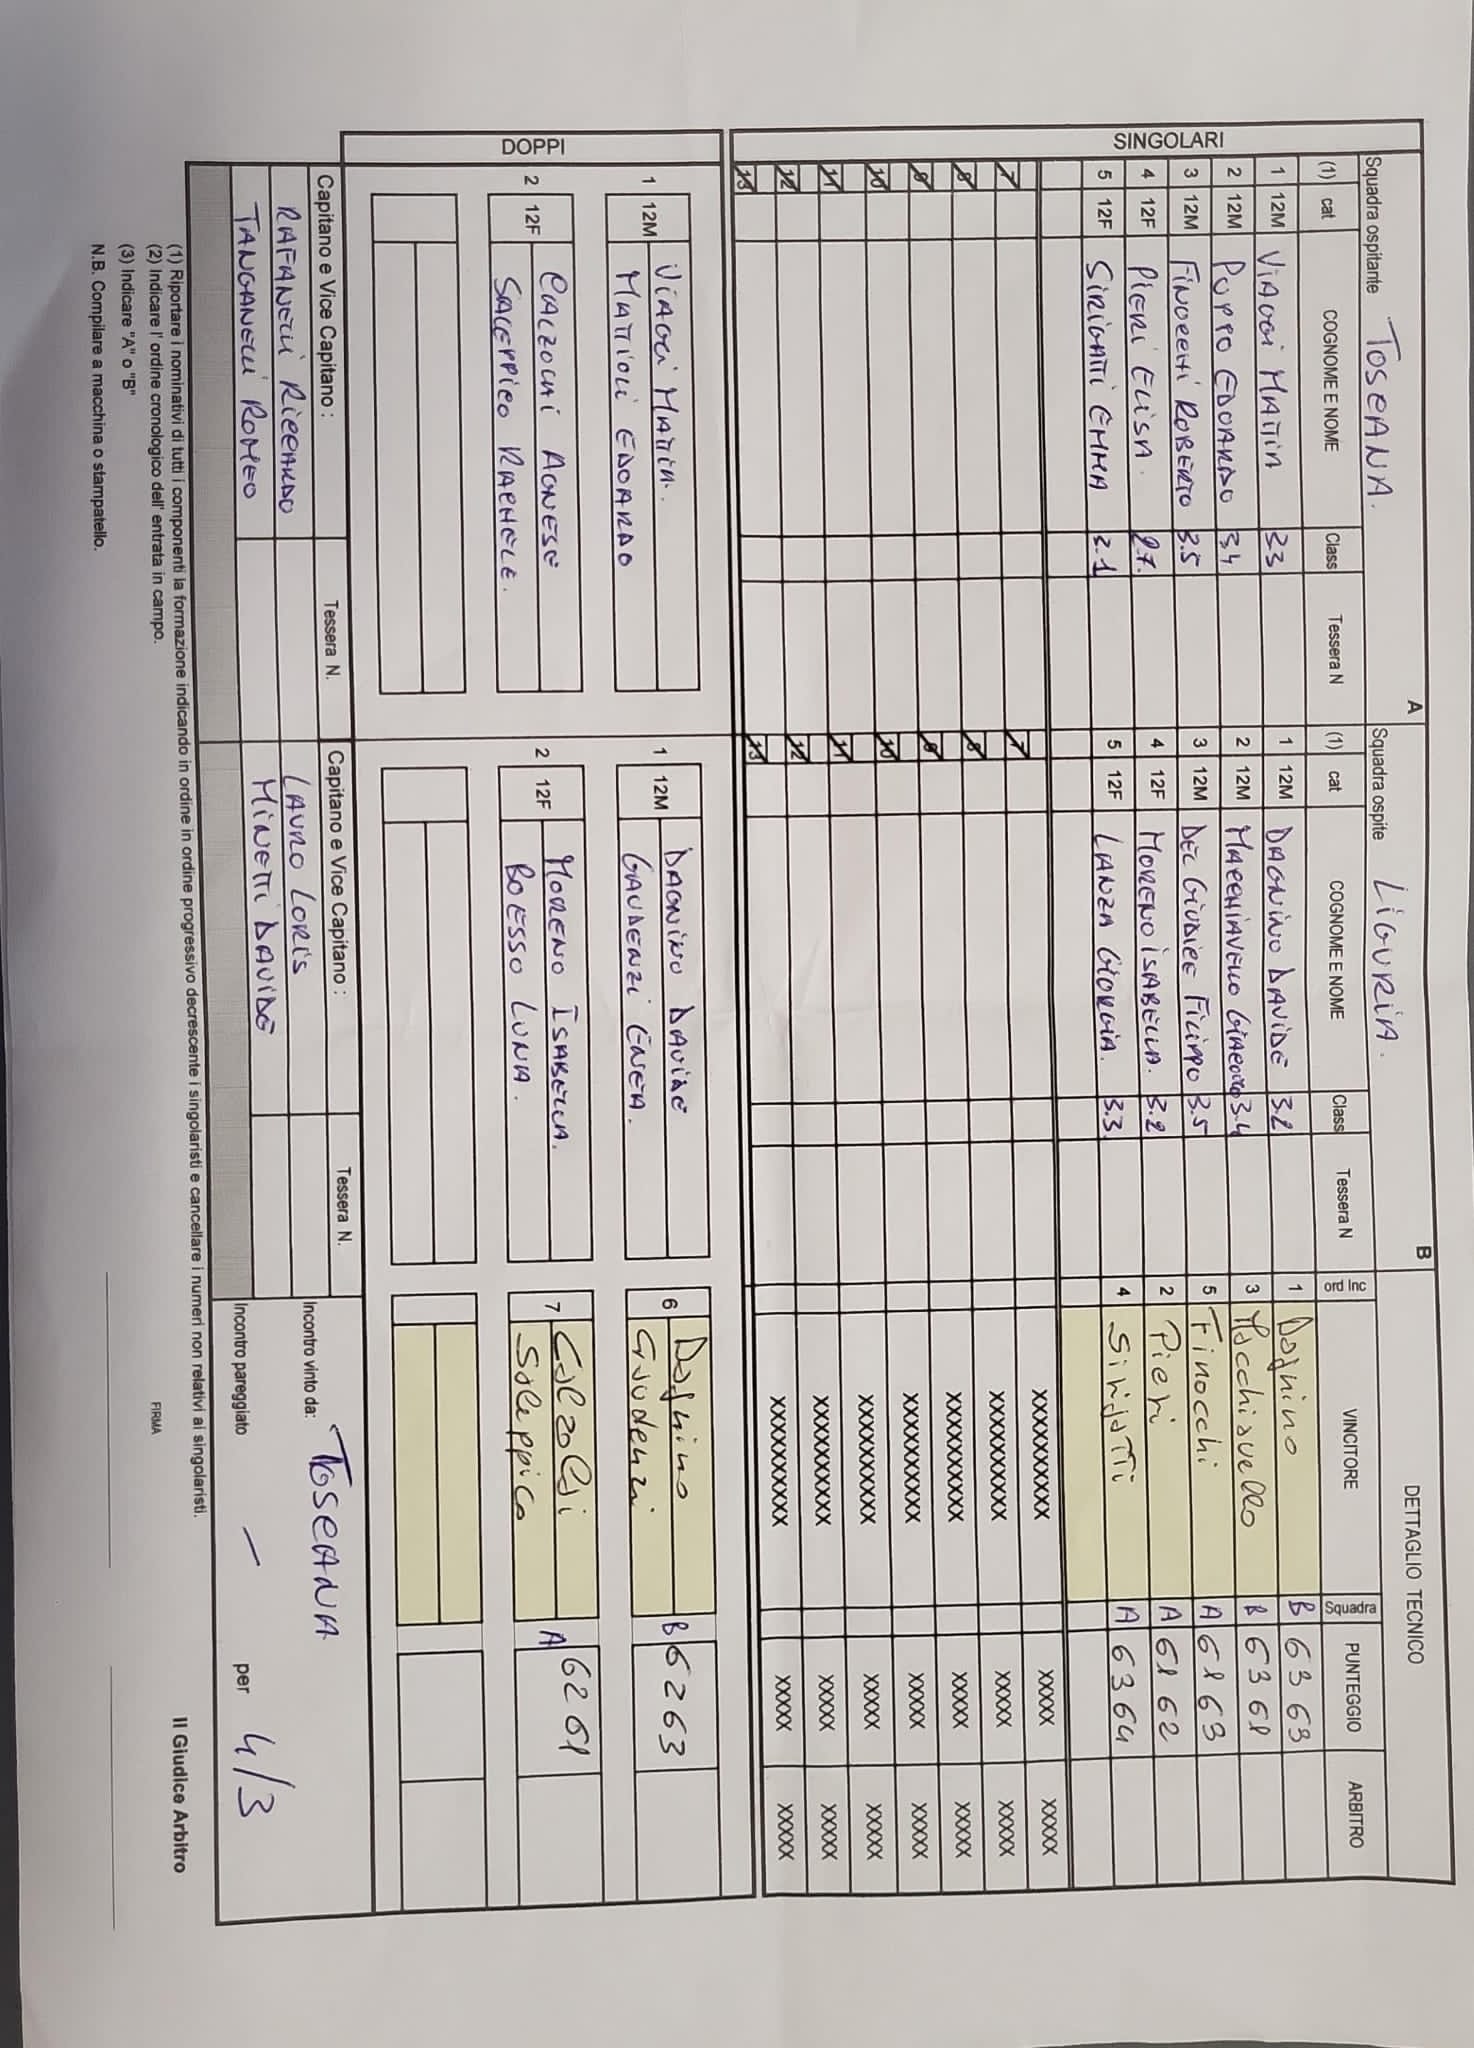 Squadra ospitante TOSCANA. A Squadra ospite LIGURIA. B DETTAGLIO TECNICO
SINGOLARI
(1) cat COGNOME E NOME Class Tessera N (1) cat COGNOME E NOME Class Tessera N ord Inc VINCITORE Squadra PUNTEGGIO ARBITRO
1 12M VIAGGI MATTIA 33 1 12M DAGNINO DAVIDE 3.2 1 Dagnino B 63 63
2 12M PUPPO EDOARDO 34 2 12M MACCHIAVELLO GIACOMO 3.4 3 Macchiavello B 63 61
3 12M FINOCCHI ROBERTO 3.5 3 12M DEL GIUDICE FILIPPO 3.5 5 Finocchi A 61 63
4 12F PIERI ELISA. 2.7. 4 12F MORENO ISABELLA. 3.2 2 Pieri A 61 62
5 12F SIRIGATTI EMMA 3.1 5 12F LANZA GIORGIA. 3.3 4 Sirigatti A 63 64
XXXXXXXXXX XXXXX XXXXX
7 7 XXXXXXXXXX XXXXX XXXXX
8 8 XXXXXXXXXX XXXXX XXXXX
9 9 XXXXXXXXXX XXXXX XXXXX
10 10 XXXXXXXXXX XXXXX XXXXX
11 11 XXXXXXXXXX XXXXX XXXXX
12 12 XXXXXXXXXX XXXXX XXXXX
13 13
DOPPI
1 12M VIAGGI MATTIA. 1 12M DAGNINO DAVIDE 6 Dagnino B 62 63
MATTIOLI EDOARDO GAUDENZI ENEA. Gaudenzi
2 12F CALZOLAI AGNESE 2 12F MORENO ISABELLA. 7 Calzolai A 62 61
SALEPPICO RACHELE. BOESSO LUNA. Saleppico
Capitano e Vice Capitano : Tessera N. Capitano e Vice Capitano : Tessera N. Incontro vinto da: TOSCANA
RAFANELLI RICCARDO LAURO LORIS
TANGANELLI ROMEO MINETTI DAVIDE Incontro pareggiato — per 4/3
(1) Riportare i nominativi di tutti i componenti la formazione indicando in ordine in ordine progressivo decrescente i singolaristi e cancellare i numeri non relativi ai singolaristi.
(2) Indicare l' ordine cronologico dell' entrata in campo. FIRMA Il Giudice Arbitro
(3) Indicare "A" o "B"
N.B. Compilare a macchina o stampatello.